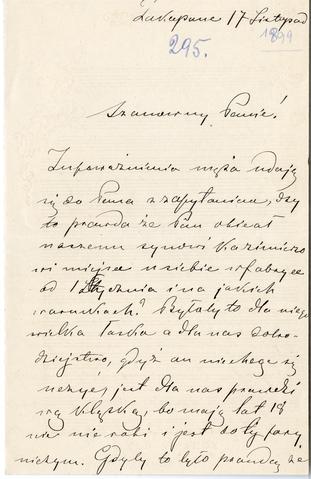 Zakopane 17 Listopad
1899
295.
Szanowny Panie!
Z upoważnienia męża udaję
się do Pana z zapytaniem, czy
to prawda że Pan obiecał
naszemu synowi Kazimierzo
wi miejsce u siebie w fabryce
od 1 Stycznia i na jakich
warunkach? Byłoby to dla niego
wielka łaska a dla nas dobro-
dziejstwo, gdyż on niechcąc się
uczyć, jest dla nas prawdzi
wą klęską, bo mając lat 18
nic nie robi i jest do tej pory
niczym. Gdyby to było prawdą że